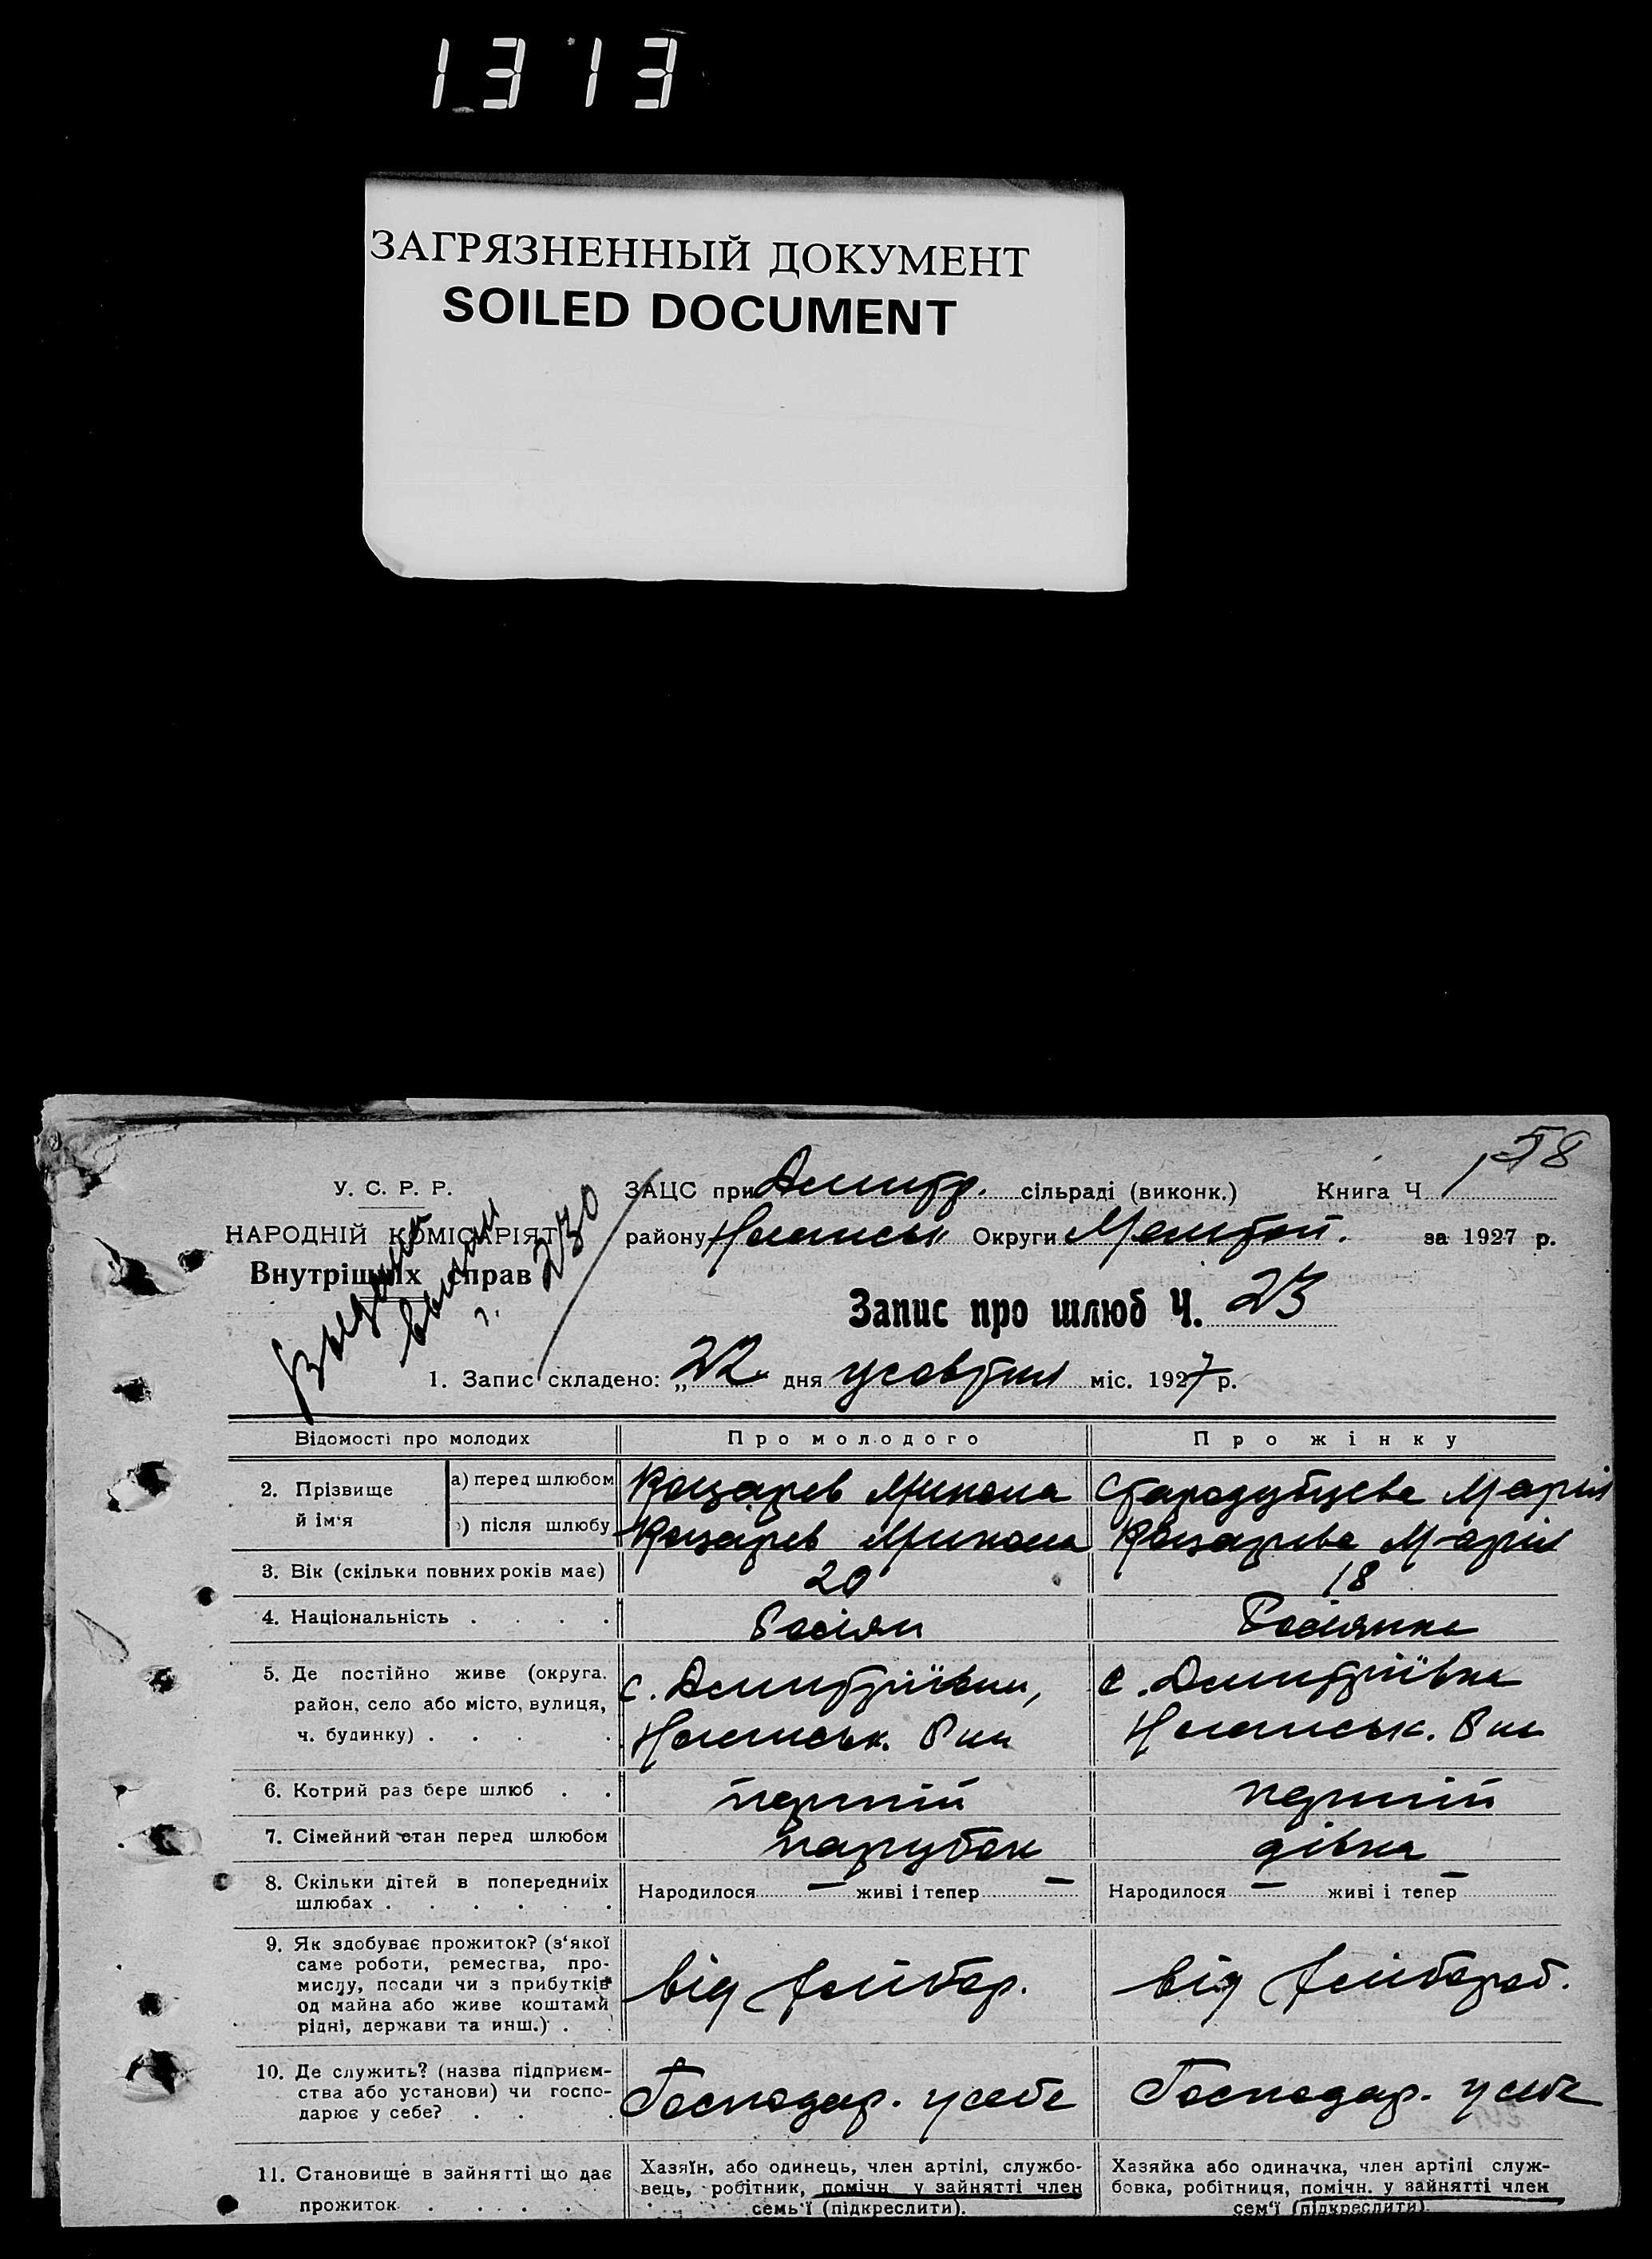 1313
ЗАГРЯЗНЕННЫЙ ДОКУМЕНТ
SOILED DOCUMENT
158
У. С. Р. Р.
НАРОДНІЙ КОМІСАРІЯТ
Внутрішніх справ
230
ЗАЦС при Дмитр. сільраді (виконк.) Книга Ч. 1
району Ногайськ Округи Мелітоп. за 1927 р.
Запис про шлюб Ч. 23
1. Запис складено: „22" дня жовтня міс. 1927 р.
Відомості про молодих
Про молодого
Про жінку
2. Прізвище й ім'я
а) перед шлюбом
Коцарев Микола
Стародубцева Марія
б) після шлюбу
Коцарев Микола
Коцарева Марія
3. Вік (скільки повних років має)
20
18
4. Національність . . . .
Росіян
Росіянка
5. Де постійно живе (округа,
район, село або місто, вулиця,
ч. будинку) . . . .
с. Дмитріївки,
Ногайськ. Р ну
с. Дмитріївка
Ногайськ. Р на
6. Котрий раз бере шлюб . .
перший
перший
7. Сімейний стан перед шлюбом
парубок
дівка
8. Скільки дітей в попередніх
шлюбах . . . . . .
Народилося — живі і тепер —
Народилося — живі і тепер —
9. Як здобуває прожиток? (з'якої
саме роботи, ремества, про-
мислу, посади чи з прибутків
од майна або живе коштами
рідні, держави та инш.) . .
від хлібор.
від хлібороб.
10. Де служить? (назва підприєм-
ства або установи) чи госпо-
дарює у себе? . . .
Господар. у себе
Господар. у себе
11. Становище в зайнятті що дає
прожиток . . . . .
Хазяїн, або одинець, член артілі, службо-
вець, робітник, помічн. у зайнятті член
семь'ї (підкреслити).
Хазяйка або одиначка, член артілі служ-
бовка, робітниця, помічн. у зайнятті член
сем'ї (підкреслити).